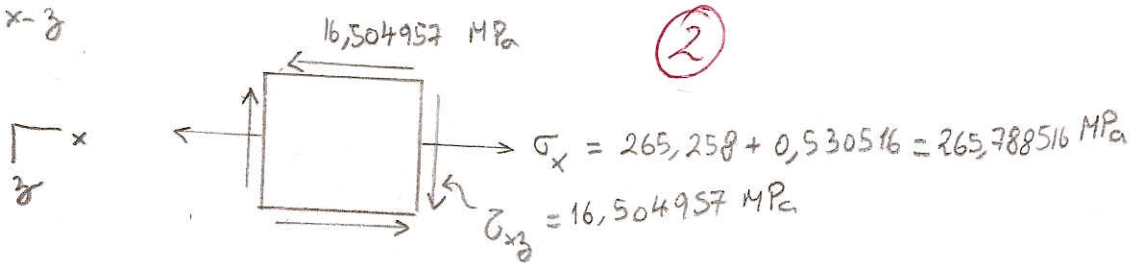 x-z
16,504957 MPa
2
x
z
σx = 265,258 + 0,530516 = 265,788516 MPa
τxz = 16,504957 MPa